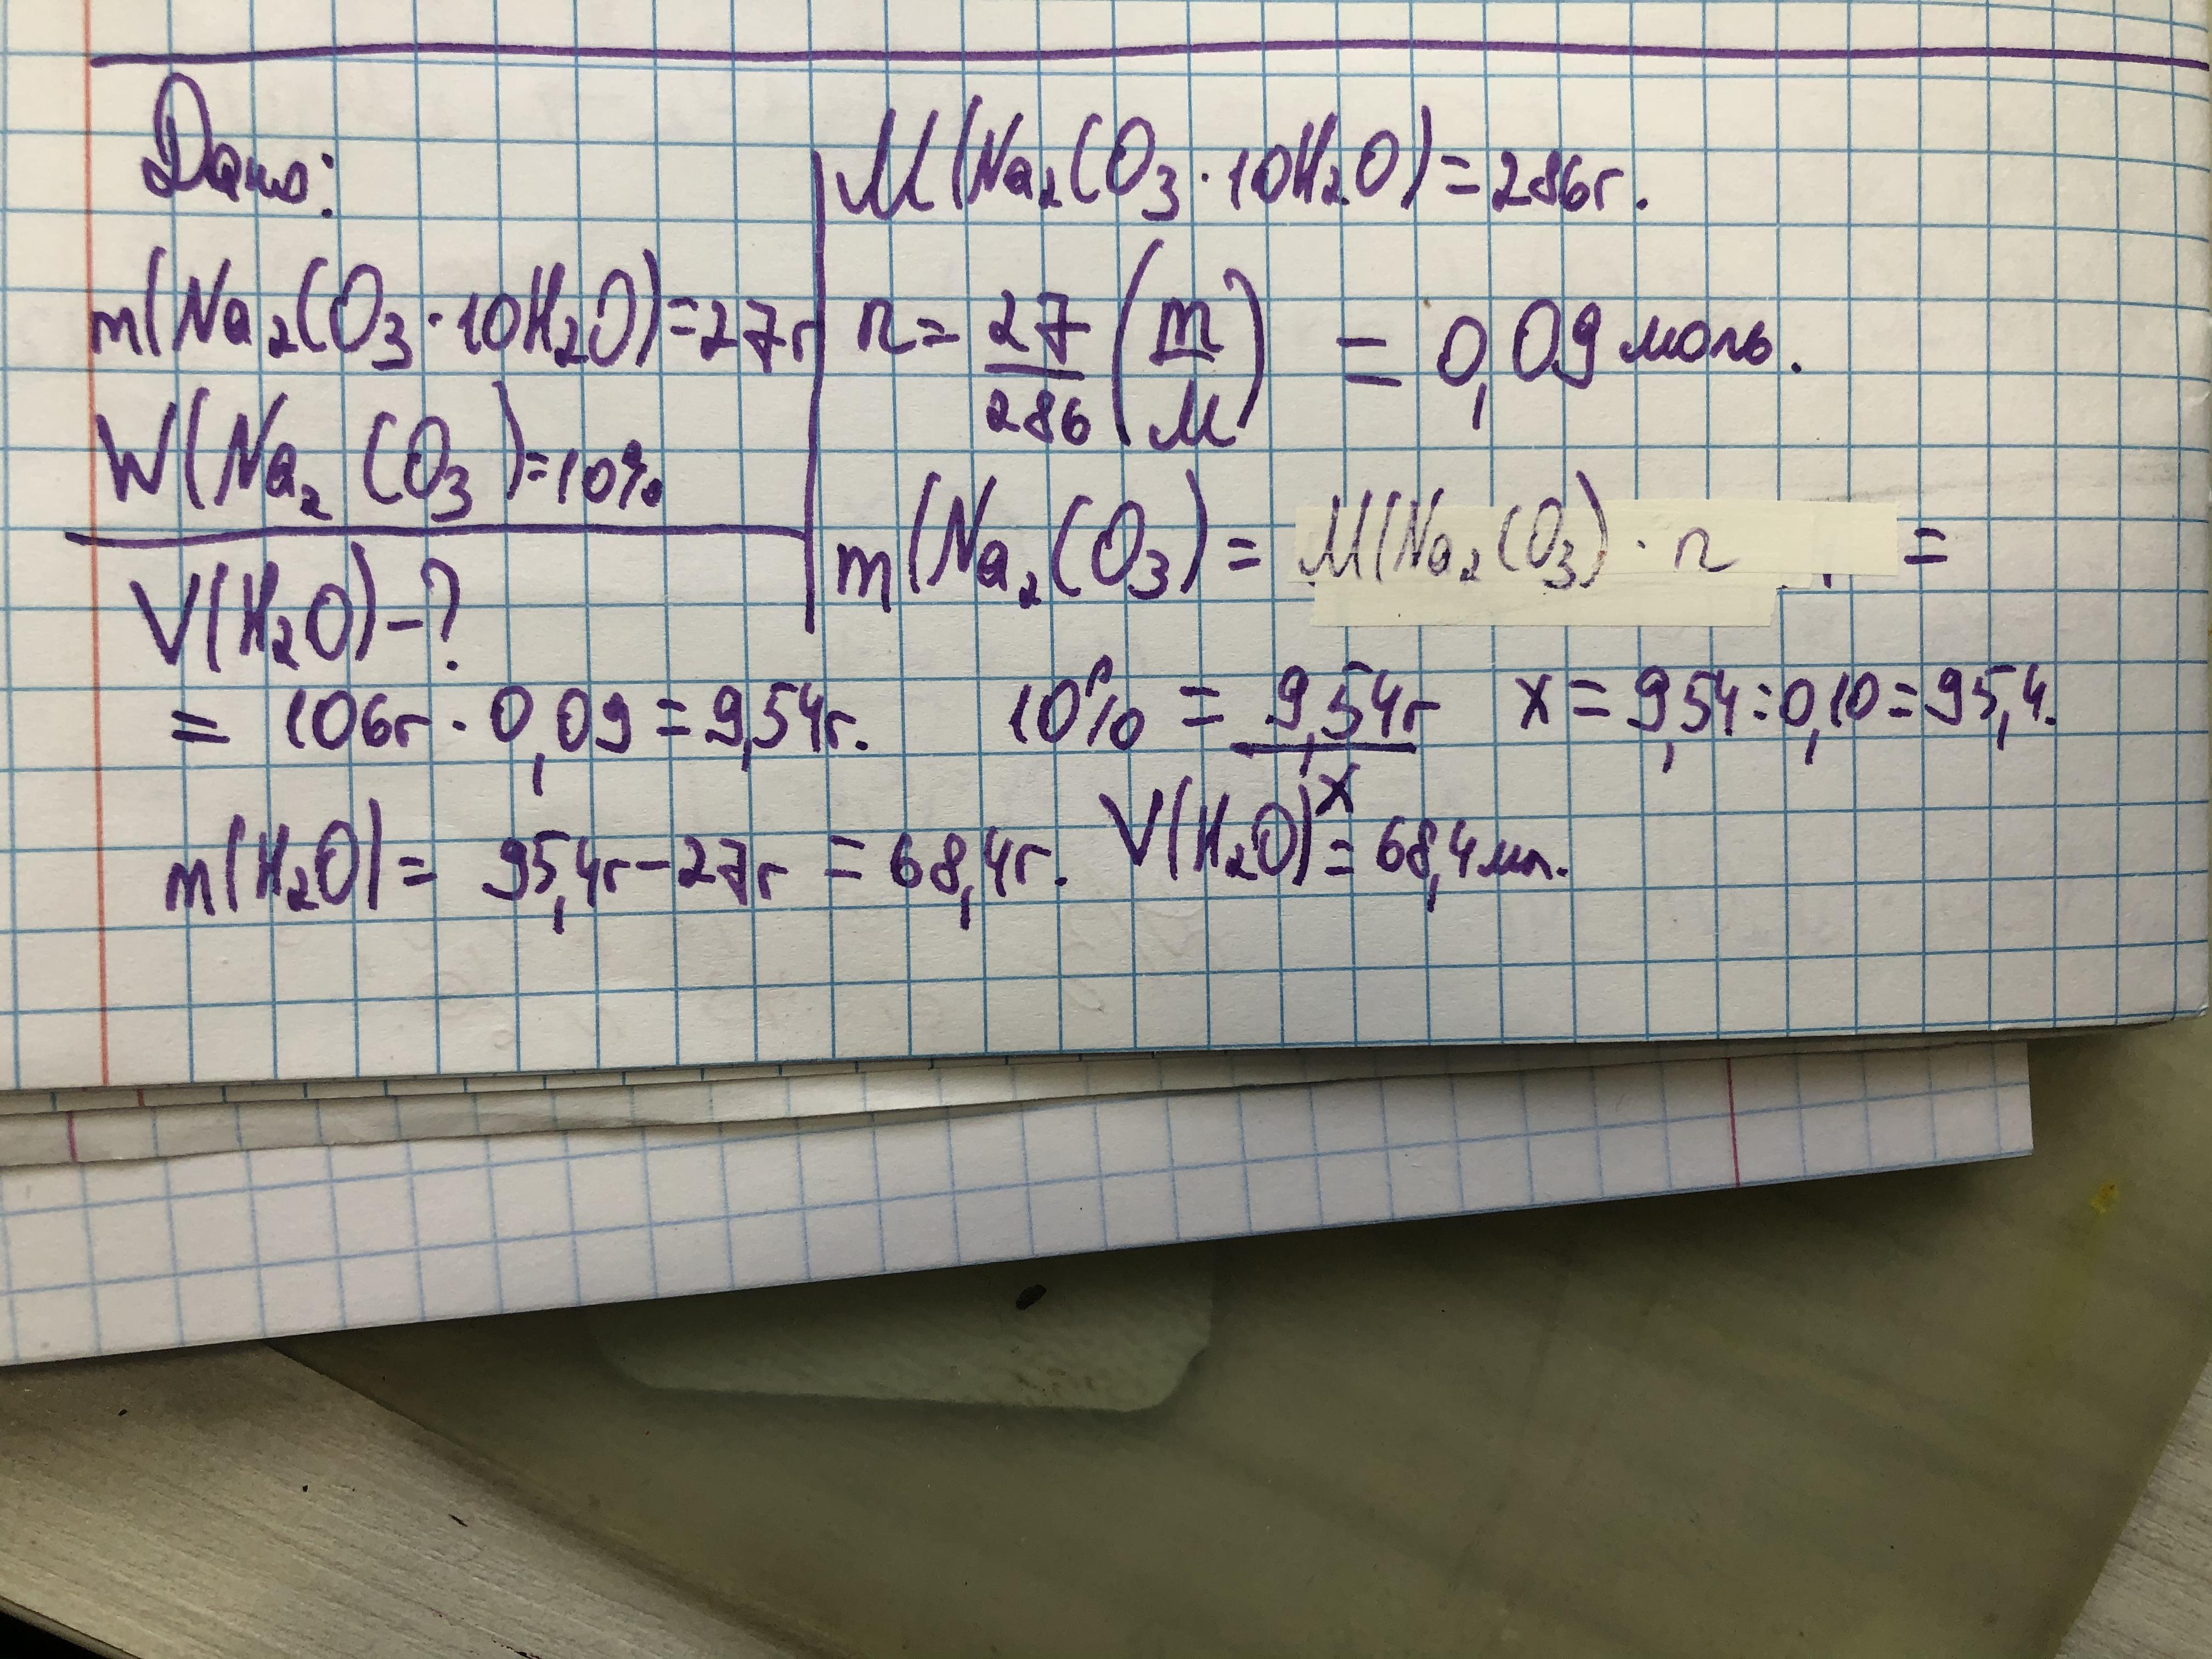 Дано:
m(Na₂CO₃·10H₂O)=27г
W(Na₂CO₃)=10%
V(H₂O)-?
M(Na₂CO₃·10H₂O)=286г.
n=27/286(m/M)=0,09моль.
m(Na₂CO₃)=M(Na₂CO₃)·n=
=106г·0,09=9,54г. 10%=9,54г/x x=9,54:0,10=95,4.
m(H₂O)=95,4г-27г=68,4г. V(H₂O)=68,4мл.